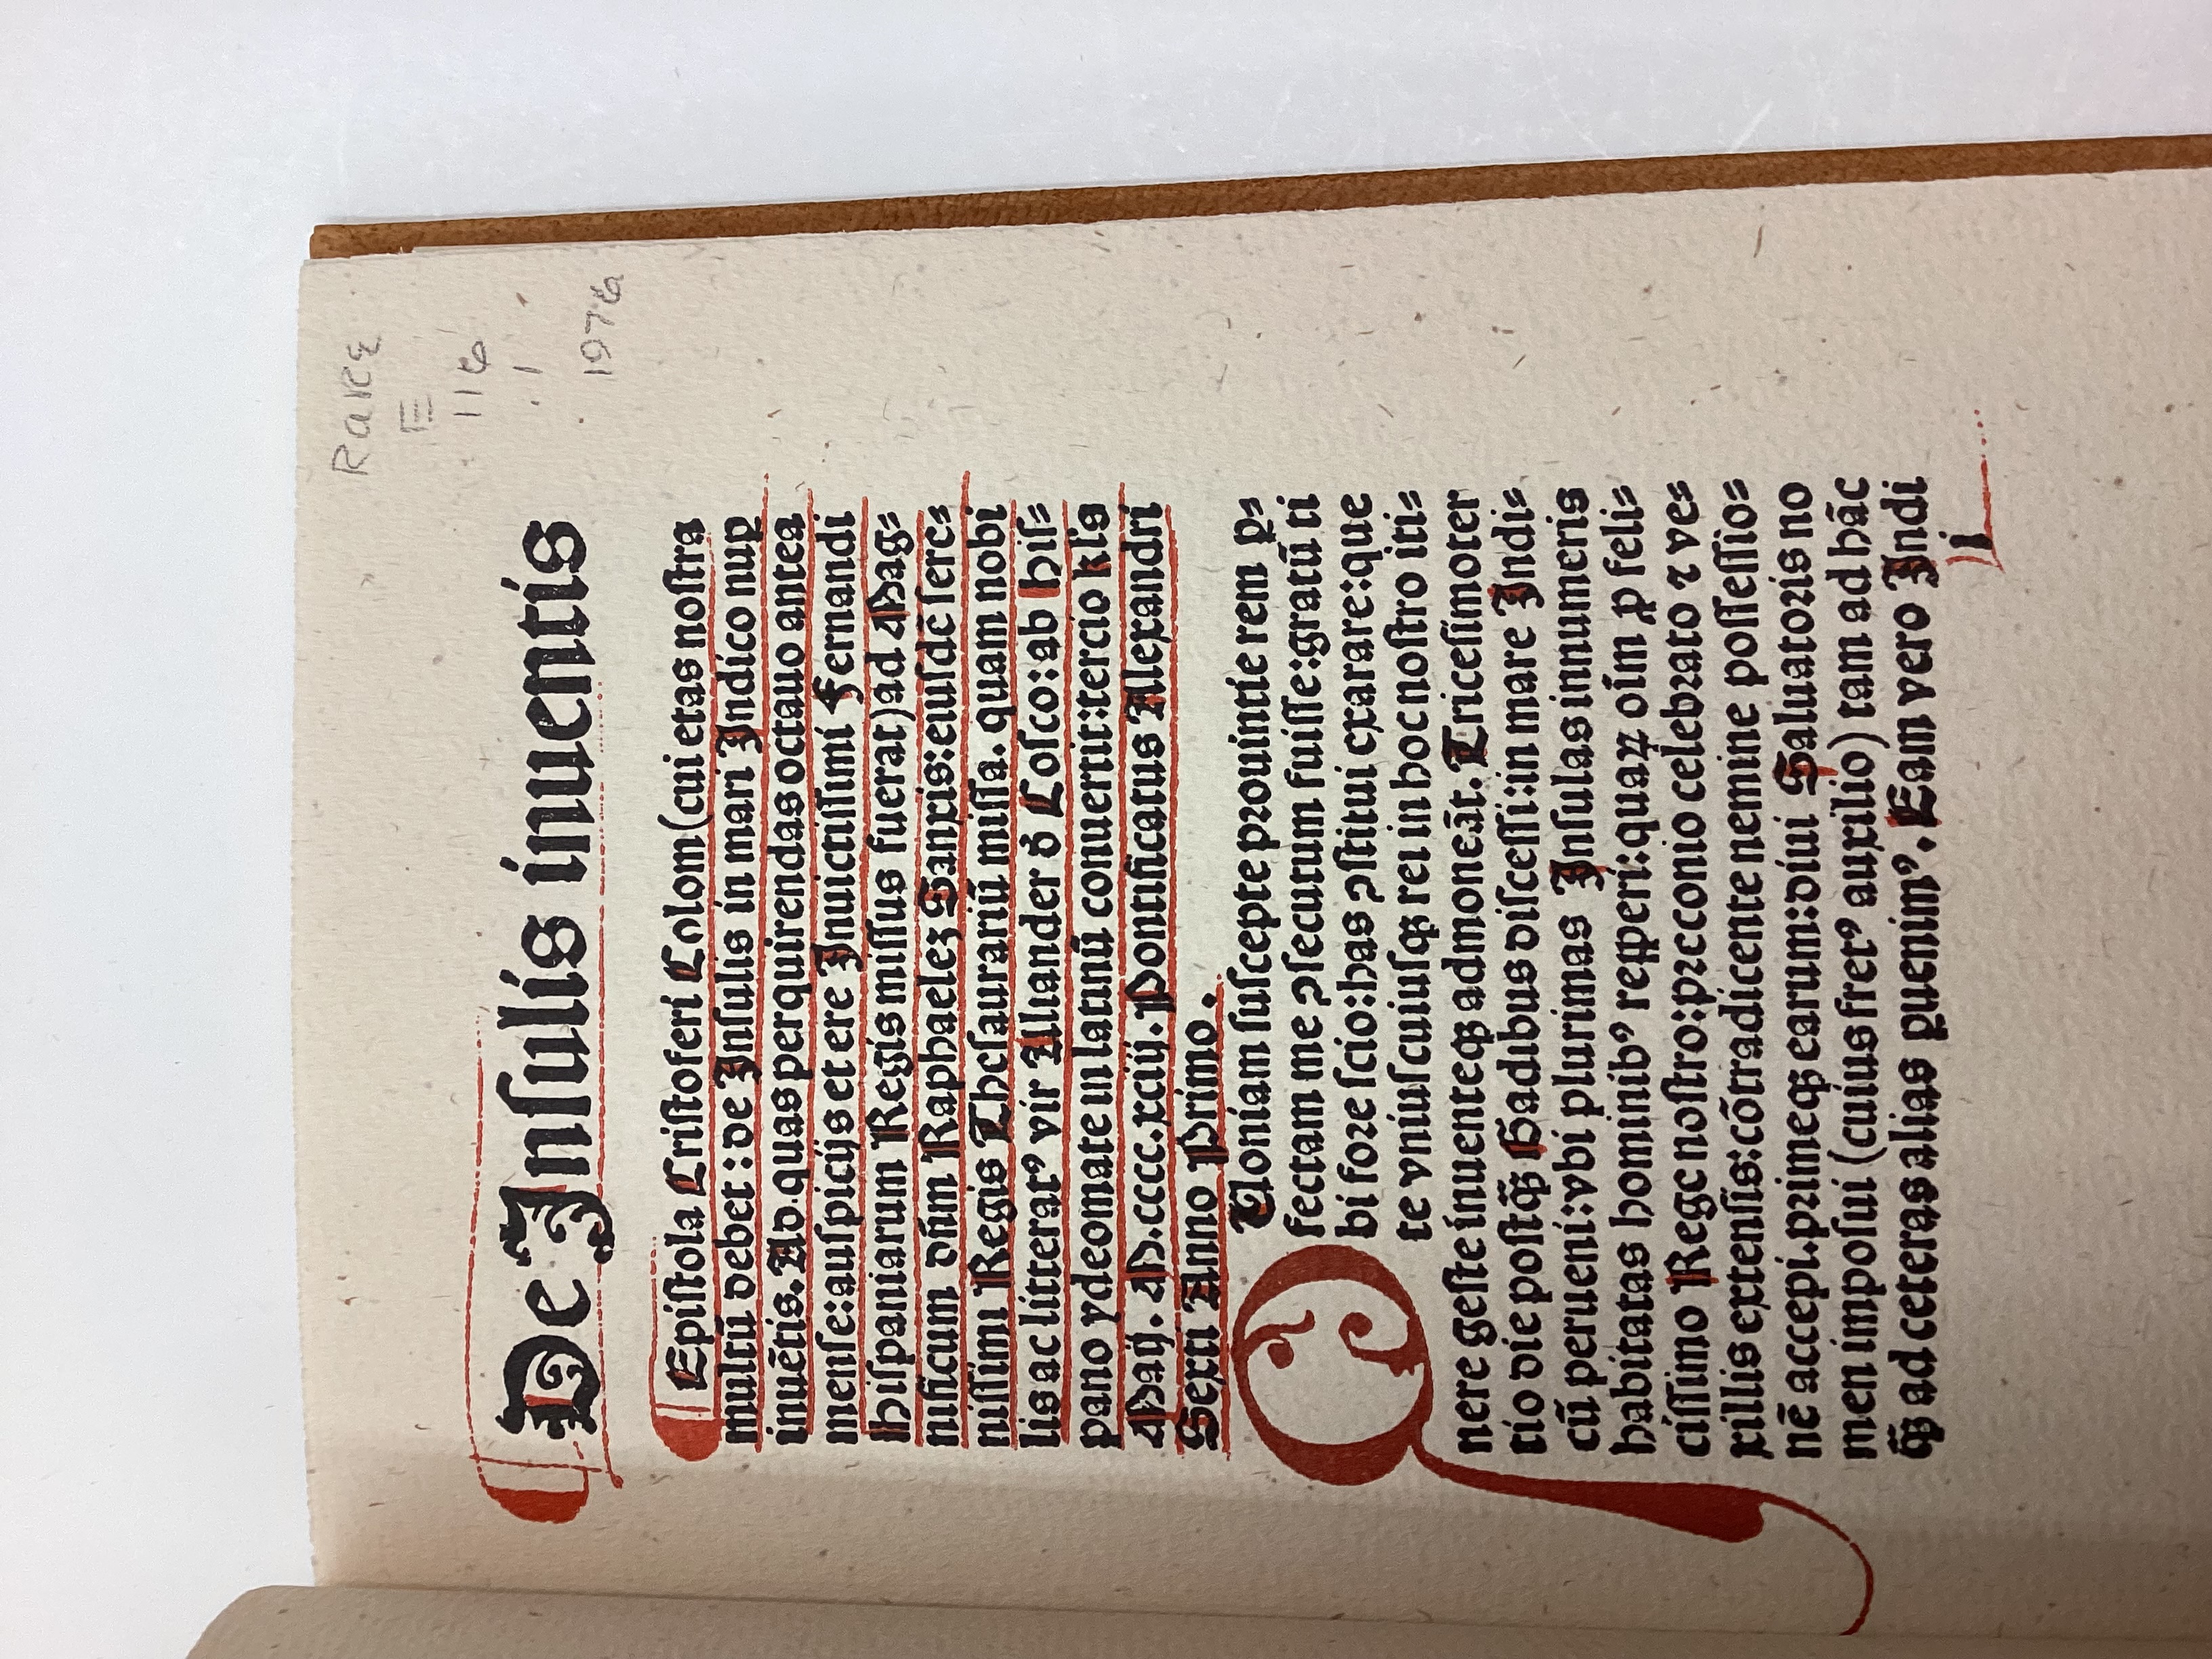 RaRE
E
116
.1
1976
De Insulis inuentis
Epistola Cristoferi Colom (cui etas nostra
multū debet: de Insulis in mari Indico nup
inuētis. Ad quas perquirendas octauo antea
mense: auspicijs et ere Inuictissimi Fernandi
Hispaniarum Regis missus fuerat) ad Mag=
nificum dn̄m Raphaelez Sanxis: eiusdē sere=
nissimi Regis Thesaurariū missa. quam nobi
lis ac litterat᾽ vir Aliander d̕ Cosco: ab His=
pano ydeomate in latinū conuertit: tercio kl̄s
Maij. M.cccc.xciij. Pontificatus Alexandri
Sexti Anno Primo.
Quoniam suscepte prouintie rem ꝑ=
fectam me ꝯsecutum fuisse: gratū ti
bi fore scio: has ꝯstitui exarare: que
te vniuscuiusqꝫ rei in hoc nostro iti=
nere geste inuenteqꝫ admoneāt. Tricesimoter
tio die postqꝫ̄ Gadibus discessi: in mare Indi=
cū perueni: vbi plurimas Insulas innumeris
habitatas hominib᾽ repperi: quaꝝ oīm ꝓ feli=
cissimo Rege nostro: preconio celebrato ⁊ ve=
xillis extensis: cōtradicente nemine possessio=
nē accepi. primeqꝫ earum: diui Saluatoris no
men imposui (cuius fret᾽ auxilio) tam ad hāc
qꝫ̄ ad ceteras alias ꝑuenim᾽. Eam vero Indi
i